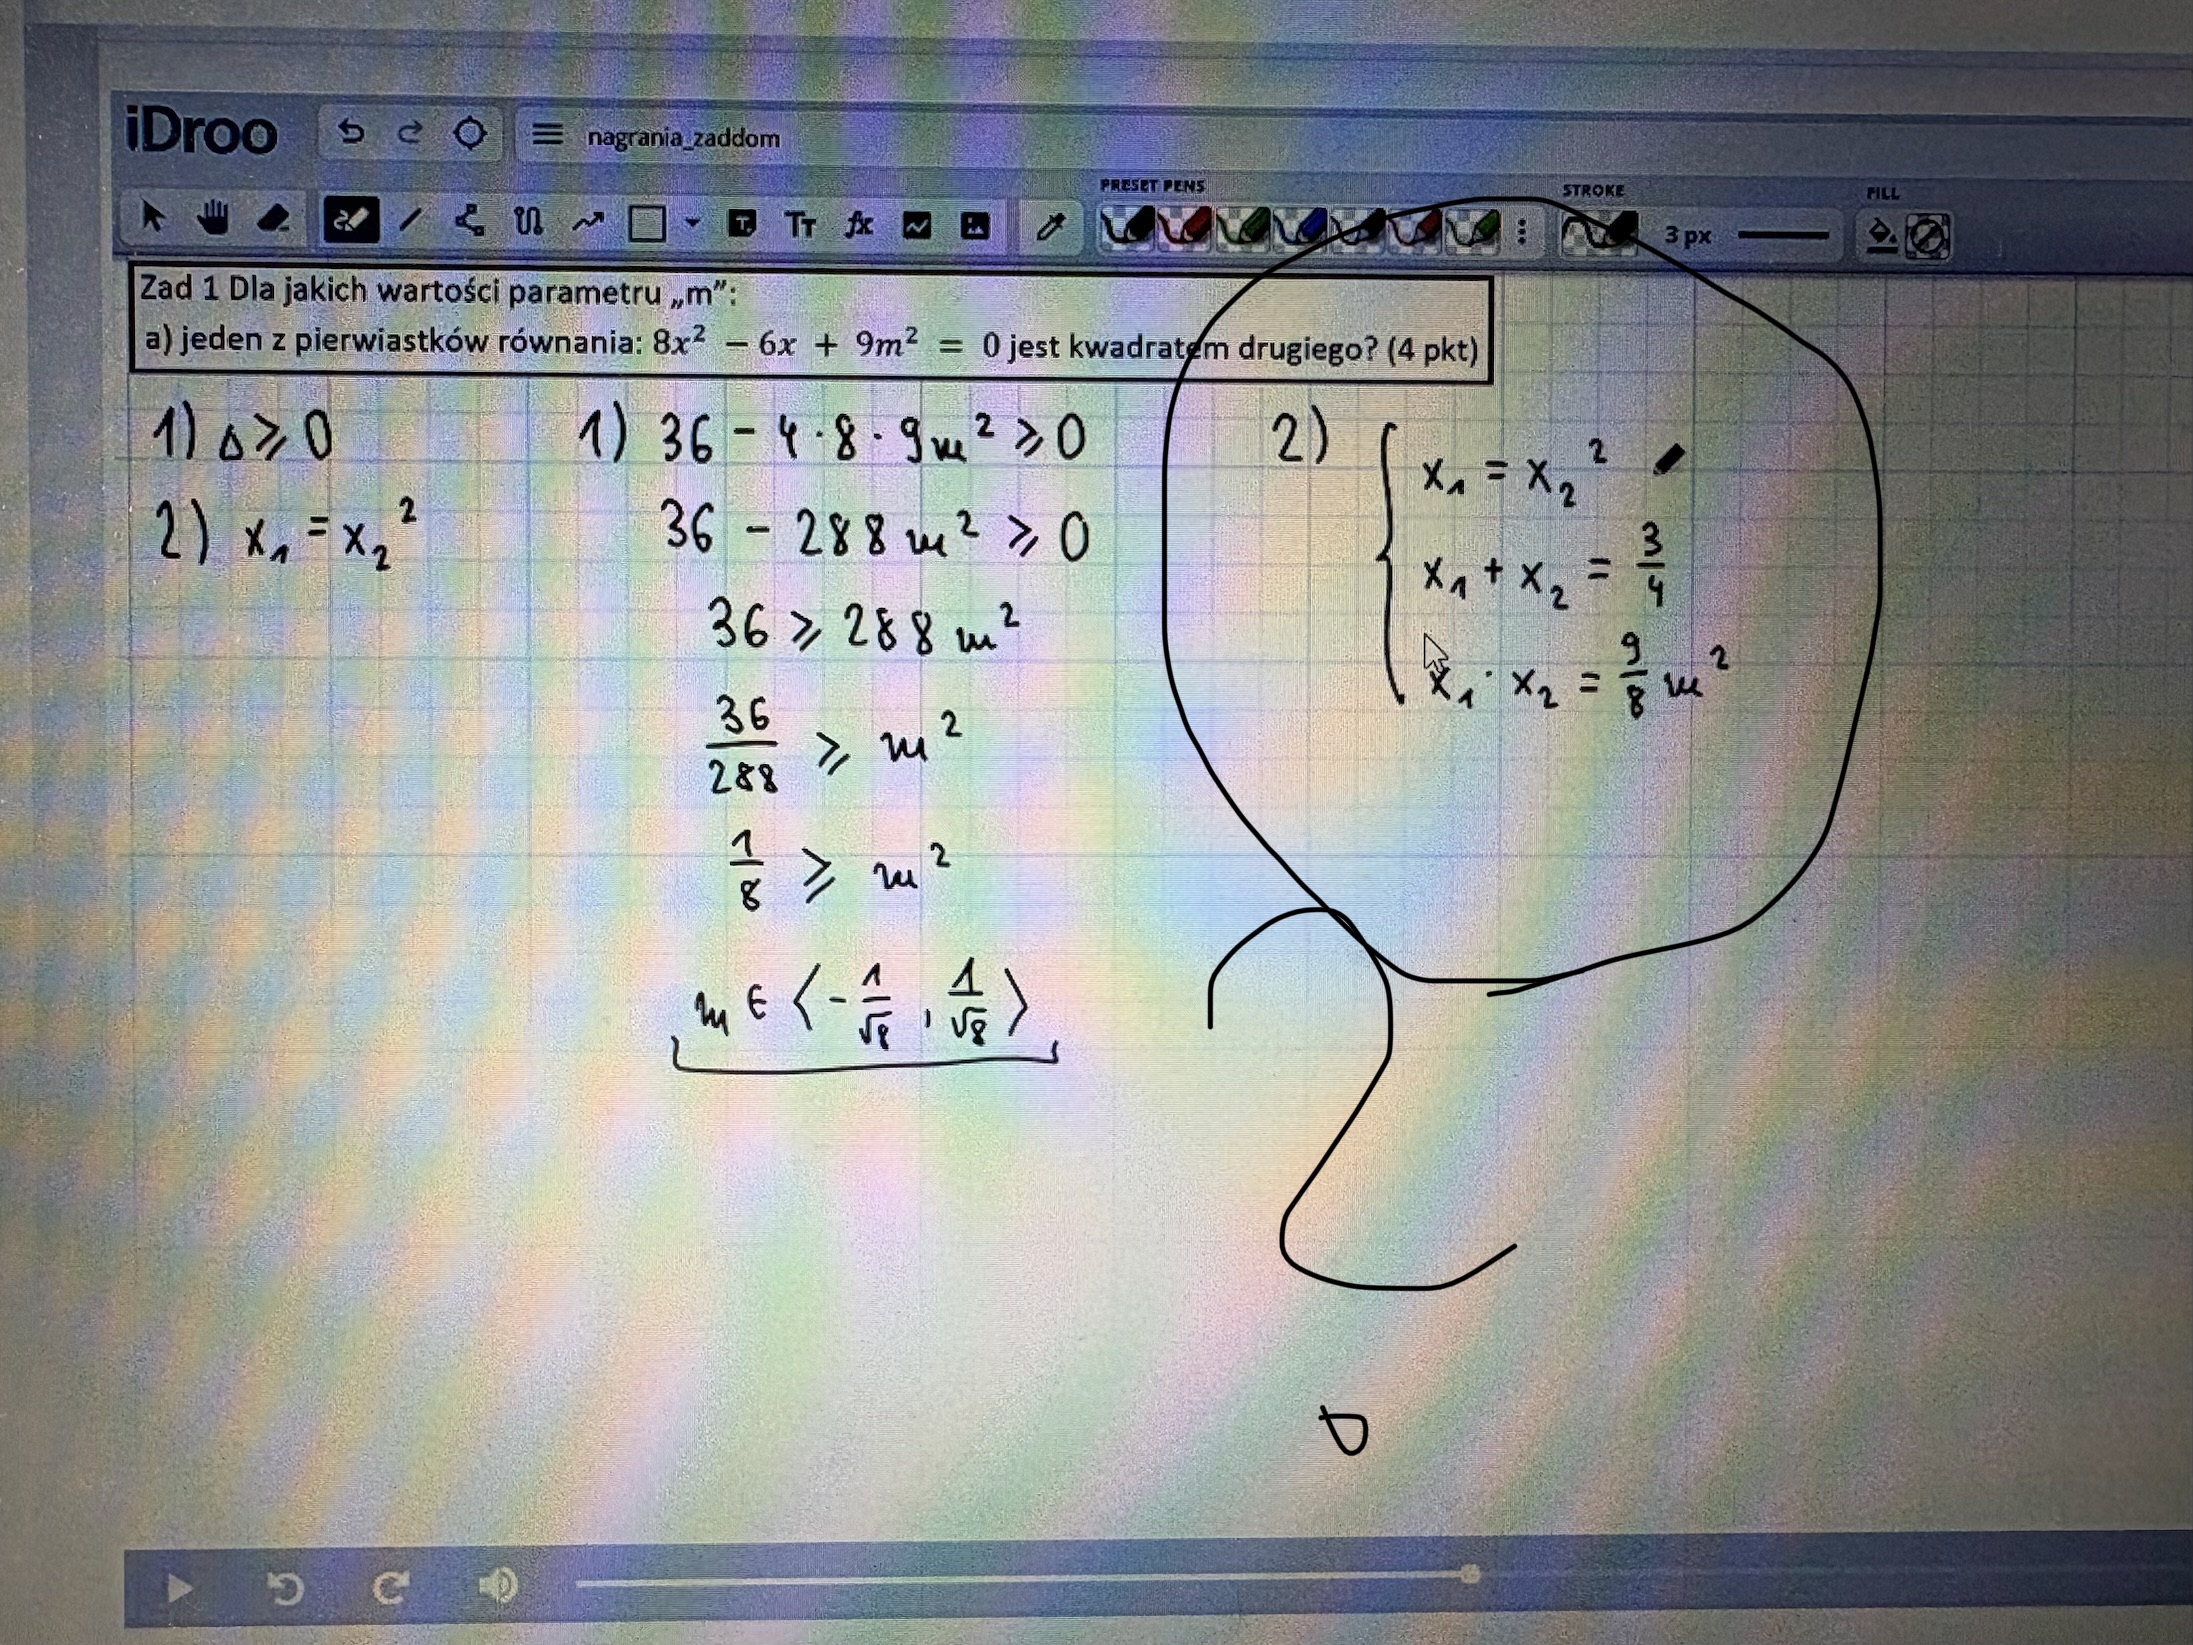 iDroo
nagrania_zaddom
PRESET PENS
STROKE
FILL
3 px
Zad 1 Dla jakich wartości parametru „m”:
a) jeden z pierwiastków równania: 8x² − 6x + 9m² = 0 jest kwadratem drugiego? (4 pkt)
1) Δ ⩾ 0
2) x₁ = x₂²
1) 36 − 4·8·9m² ⩾ 0
36 − 288m² ⩾ 0
36 ⩾ 288m²
36/288 ⩾ m²
1/8 ⩾ m²
m ∈ ⟨−1/√8, 1/√8⟩
2) { x₁ = x₂²
x₁ + x₂ = 3/4
x₁ · x₂ = 9/8 m²